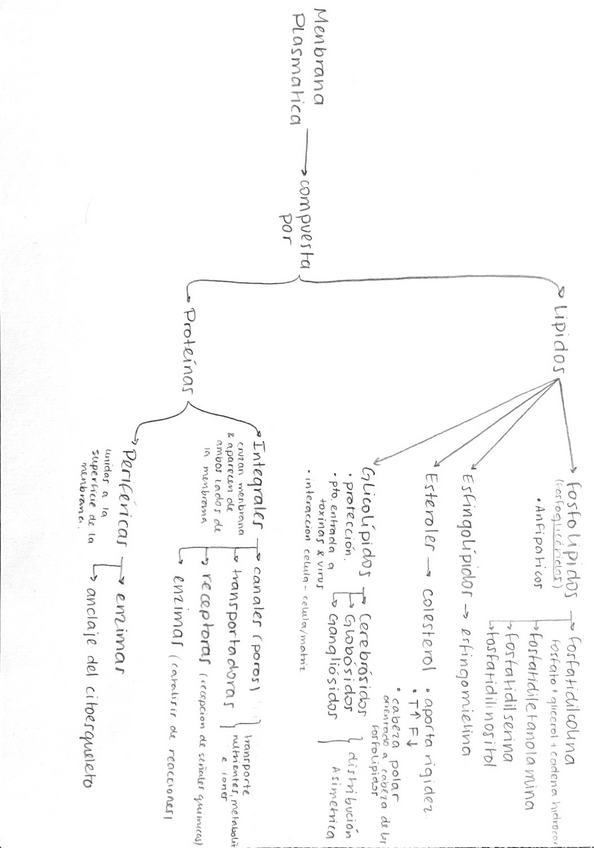 Menbrana
Plasmatica
compuesta
por
Lipidos
Fosfolipidos
(Fosfoglicéridos)
• Anfipaticos
fosfatidilcolina
fosfato + glicerol + cadena hidrocar
fosfatidiletanolamina
fosfatidilserina
fosfatidilinositol
Esfingolípidos
esfingomielina
Esteroles
colesterol
• aporta rigidez
• T↑ F↓
• cabeza polar
orientado a cabeza de los
fosfolipidos
Glicolípidos
• protección.
• pto. entrada a
toxinas & virus
• interaccion celula-celula/matriz
Cerebrósidos
Globósidos
Gangliósidos
distribución
Asimetrica
Proteínas
Integrales
cruzan menbrana
& aparecen de
ambos lados de
la membrana
canales (poros)
transportadoras
transporte
nutrientes, metaboli
e iones
receptoras (recepcion de señales quimicas)
enzimas (catalisis de reacciones)
Periféricas
unidas a la
superficie de la
menbrana.
enzimas
anclaje del citoesqueleto